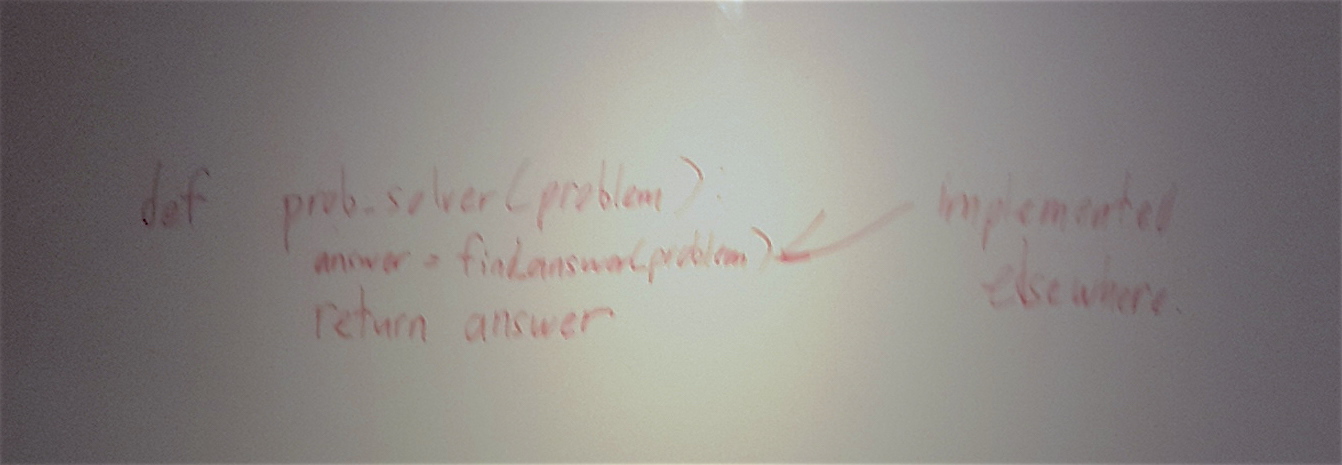 def prob_solver(problem):
answer = find_answer(problem)
return answer
implemented
elsewhere.